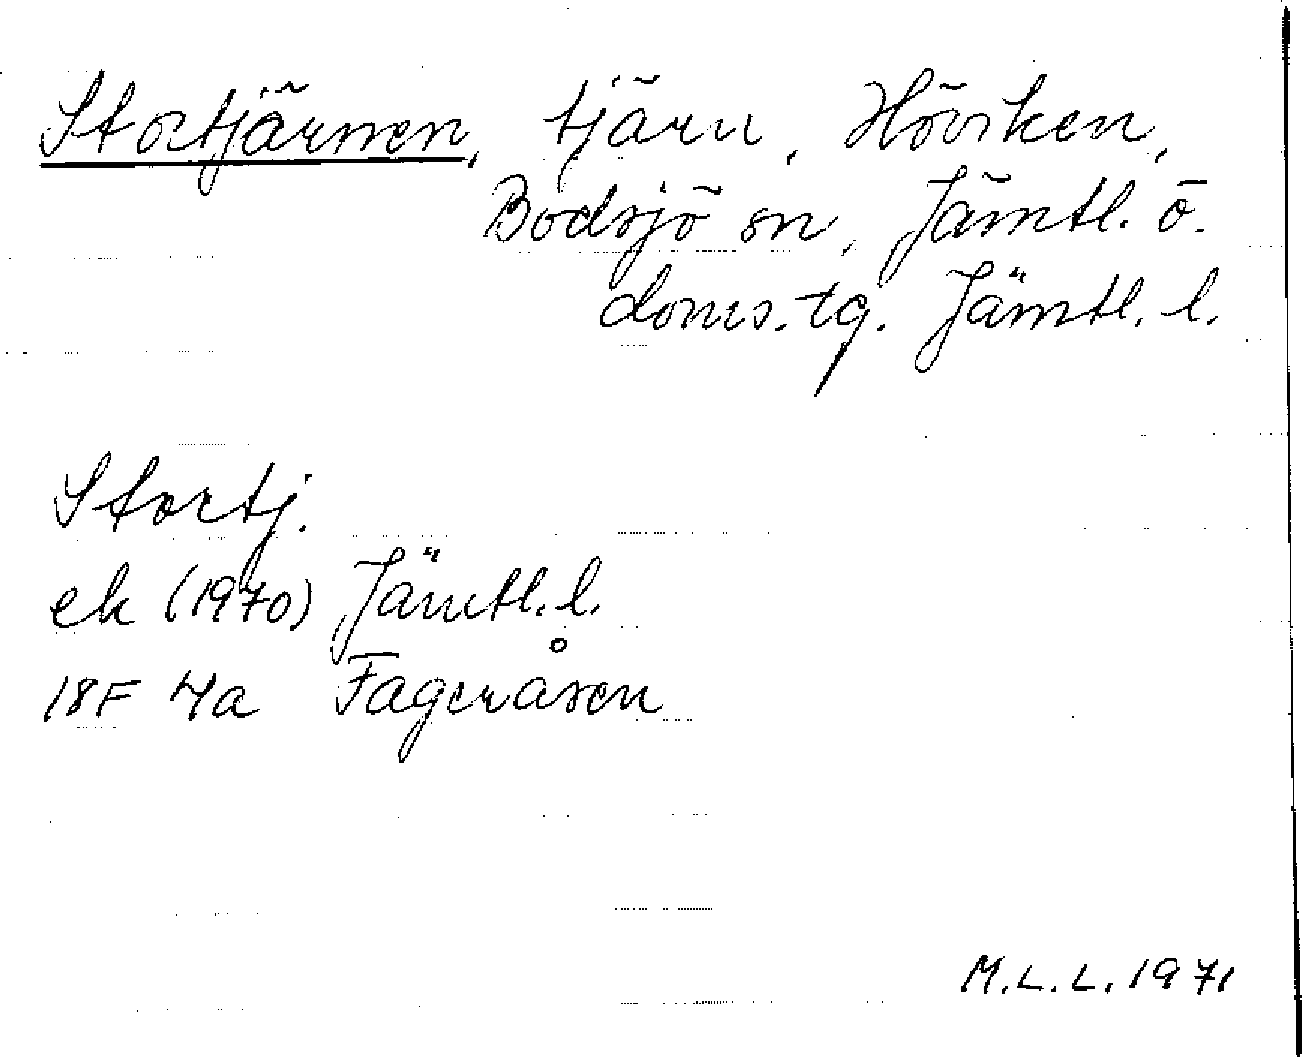 Stortjärnen, tjärn, Höviken,
Bodsjö sn, Jämtl. ö.
doms. tg. Jämtl. l.
Stortj.
ek (1970) Jämtl. l.
18F 4a Fageråsen
M.L.L. 1971